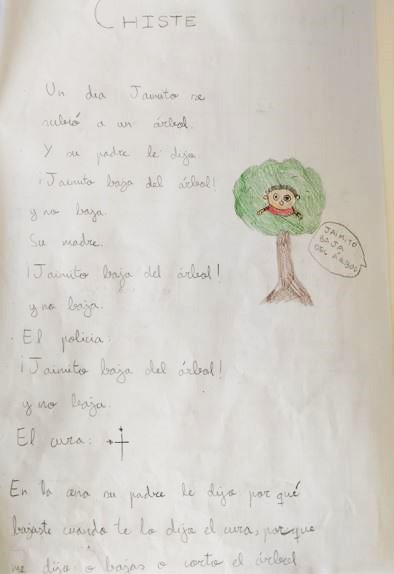 CHISTE
Un dia Jaimito se
subió a un árbol.
Y su padre le dijo
¡Jaimito baja del árbol!
y no baja.
Su madre.
¡Jaimito baja del árbol!
y no baja.
El policia:
¡Jaimito baja del árbol!
y no baja.
El cura:
En la cena su padre le dijo por qué
bajaste cuando te lo dijo el cura, porque
me dijo: o bajas o corto el árbol
JAIMITO
BAJA
DEL ÁRBOL